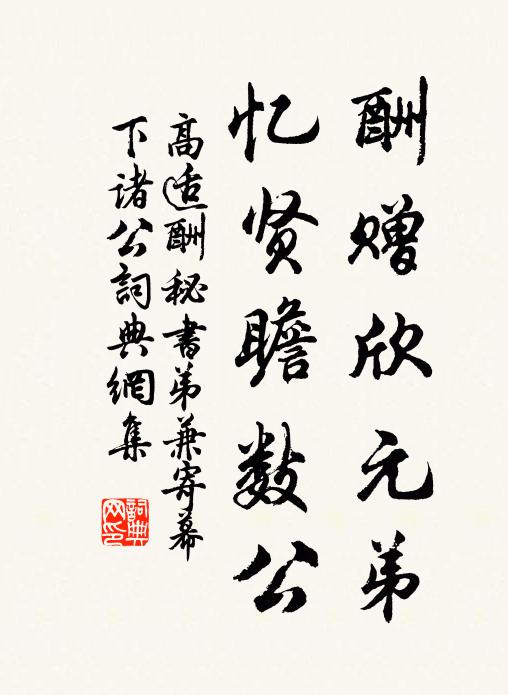 酬赠欣元弟
忆贤瞻数公
高适酬秘书弟兼寄幕
下诸公詞典網集
詞典网印